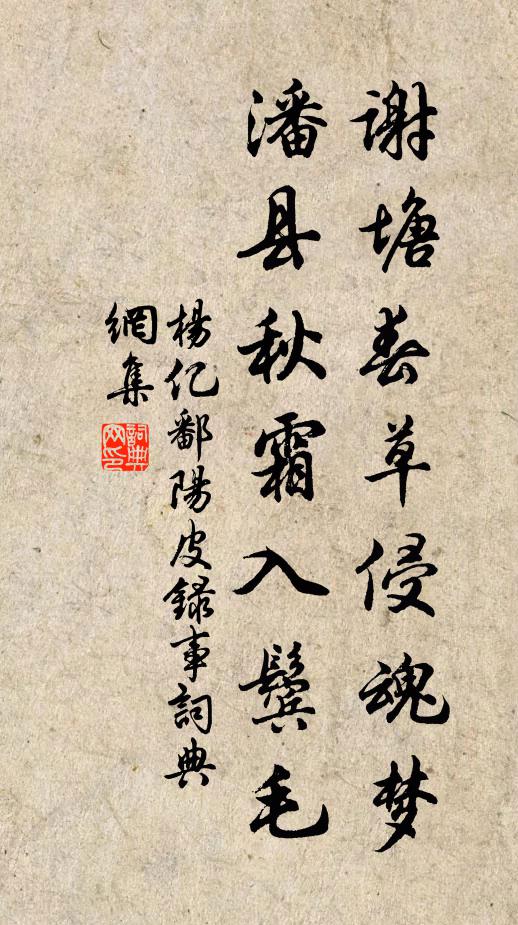 谢塘春草侵魂梦
潘县秋霜入鬓毛
杨亿鄱陽皮録事詞典
網集
詞典
网印